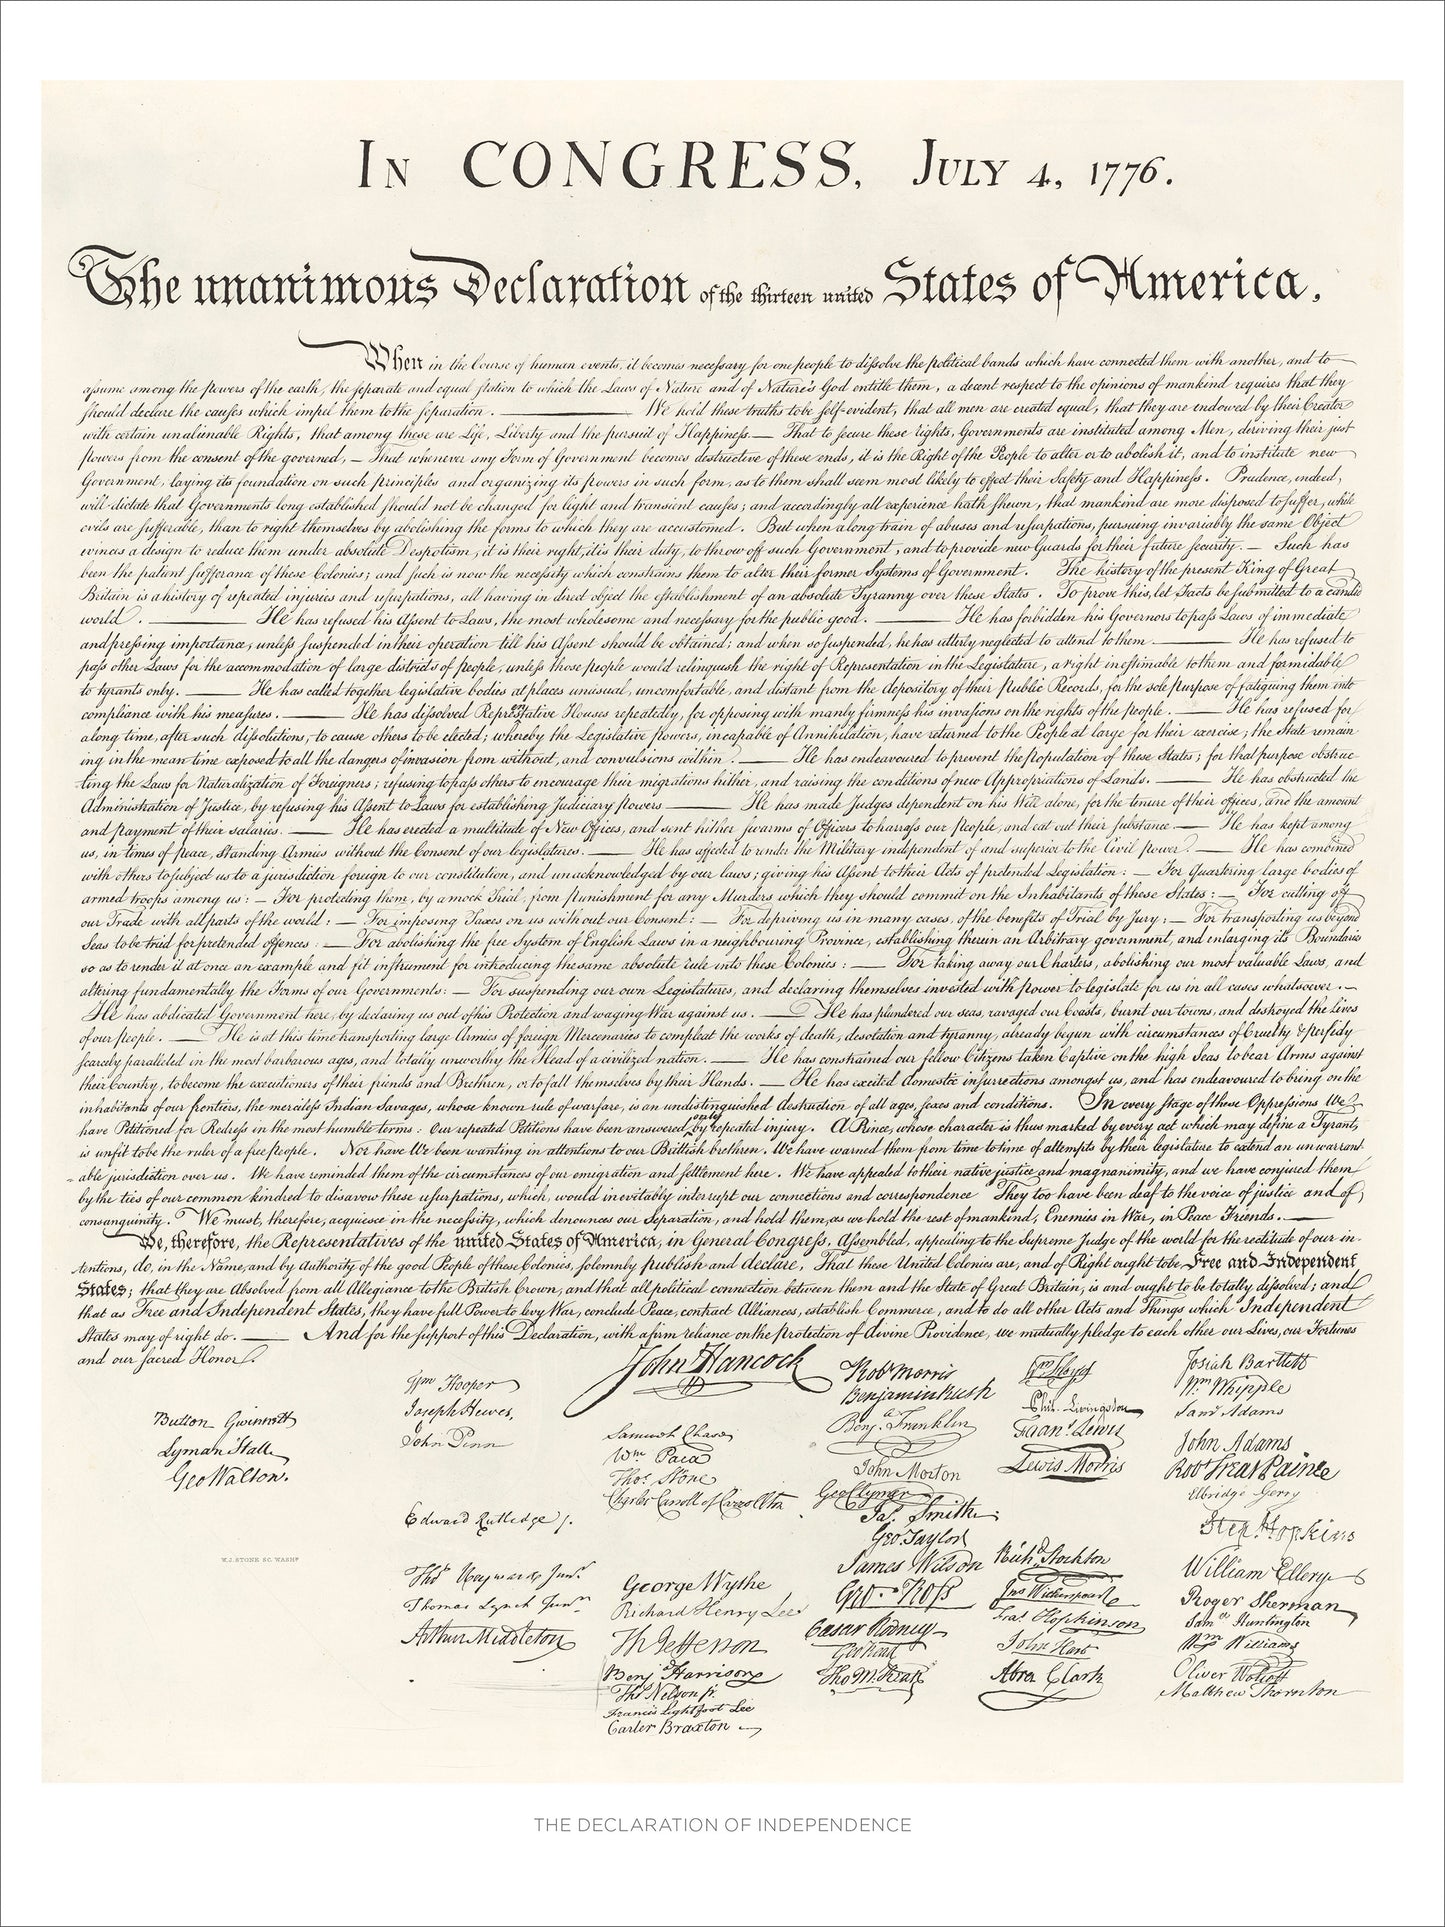 In CONGRESS, July 4, 1776.
The unanimous Declaration of the thirteen united States of America,
When in the Course of human events, it becomes necessary for one people to dissolve the political bands which have connected them with another, and to
assume among the powers of the earth, the separate and equal station to which the Laws of Nature and of Nature's God entitle them, a decent respect to the opinions of mankind requires that they
should declare the causes which impel them to the separation. — We hold these truths to be self-evident, that all men are created equal, that they are endowed by their Creator
with certain unalienable Rights, that among these are Life, Liberty and the pursuit of Happiness. — That to secure these rights, Governments are instituted among Men, deriving their just
powers from the consent of the governed, — That whenever any Form of Government becomes destructive of these ends, it is the Right of the People to alter or to abolish it, and to institute new
Government, laying its foundation on such principles and organizing its powers in such form, as to them shall seem most likely to effect their Safety and Happiness. Prudence, indeed,
will dictate that Governments long established should not be changed for light and transient causes; and accordingly all experience hath shewn, that mankind are more disposed to suffer, while
evils are sufferable, than to right themselves by abolishing the forms to which they are accustomed. But when a long train of abuses and usurpations, pursuing invariably the same Object
evinces a design to reduce them under absolute Despotism, it is their right, it is their duty, to throw off such Government, and to provide new Guards for their future security. — Such has
been the patient sufferance of these Colonies; and such is now the necessity which constrains them to alter their former Systems of Government. The history of the present King of Great
Britain is a history of repeated injuries and usurpations, all having in direct object the establishment of an absolute Tyranny over these States. To prove this, let Facts be submitted to a candid
world. — He has refused his Assent to Laws, the most wholesome and necessary for the public good. — He has forbidden his Governors to pass Laws of immediate
and pressing importance, unless suspended in their operation till his Assent should be obtained; and when so suspended, he has utterly neglected to attend to them. — He has refused to
pass other Laws for the accommodation of large districts of people, unless those people would relinquish the right of Representation in the Legislature, a right inestimable to them and formidable
to tyrants only. — He has called together legislative bodies at places unusual, uncomfortable, and distant from the depository of their Public Records, for the sole purpose of fatiguing them into
compliance with his measures. — He has dissolved Representative Houses repeatedly, for opposing with manly firmness his invasions on the rights of the people. — He has refused for
a long time, after such dissolutions, to cause others to be elected; whereby the Legislative powers, incapable of Annihilation, have returned to the People at large for their exercise; the State remain-
ing in the mean time exposed to all the dangers of invasion from without, and convulsions within. — He has endeavoured to prevent the population of these States; for that purpose obstruc-
ting the Laws for Naturalization of Foreigners; refusing to pass others to encourage their migrations hither, and raising the conditions of new Appropriations of Lands. — He has obstructed the
Administration of Justice, by refusing his Assent to Laws for establishing Judiciary powers — He has made Judges dependent on his Will alone, for the tenure of their offices, and the amount
and payment of their salaries. — He has erected a multitude of New Offices, and sent hither swarms of Officers to harrass our people, and eat out their substance. — He has kept among
us, in times of peace, Standing Armies without the Consent of our legislatures. — He has affected to render the Military independent of and superior to the Civil power. — He has combined
with others to subject us to a jurisdiction foreign to our constitution, and unacknowledged by our laws; giving his Assent to their Acts of pretended Legislation: — For Quartering large bodies of
armed troops among us: — For protecting them, by a mock Trial, from punishment for any Murders which they should commit on the Inhabitants of these States: — For cutting off
our Trade with all parts of the world: — For imposing Taxes on us without our Consent: — For depriving us in many cases, of the benefits of Trial by Jury: — For transporting us beyond
Seas to be tried for pretended offences: — For abolishing the free System of English Laws in a neighbouring Province, establishing therein an Arbitrary government, and enlarging its Boundaries
so as to render it at once an example and fit instrument for introducing the same absolute rule into these Colonies: — For taking away our Charters, abolishing our most valuable Laws, and
altering fundamentally the Forms of our Governments: — For suspending our own Legislatures, and declaring themselves invested with power to legislate for us in all cases whatsoever. —
He has abdicated Government here, by declaring us out of his Protection and waging War against us. — He has plundered our seas, ravaged our Coasts, burnt our towns, and destroyed the Lives
of our people. — He is at this time transporting large Armies of foreign Mercenaries to compleat the works of death, desolation and tyranny, already begun with circumstances of Cruelty & perfidy
scarcely paralleled in the most barbarous ages, and totally unworthy the Head of a civilized nation. — He has constrained our fellow Citizens taken Captive on the high Seas to bear Arms against
their Country, to become the executioners of their friends and Brethren, or to fall themselves by their Hands. — He has excited domestic insurrections amongst us, and has endeavoured to bring on the
inhabitants of our frontiers, the merciless Indian Savages, whose known rule of warfare, is an undistinguished destruction of all ages, sexes and conditions. In every stage of these Oppressions We
have Petitioned for Redress in the most humble terms: Our repeated Petitions have been answered only by repeated injury. A Prince, whose character is thus marked by every act which may define a Tyrant,
is unfit to be the ruler of a free people. Nor have We been wanting in attentions to our Brittish brethren. We have warned them from time to time of attempts by their legislature to extend an unwarrant-
able jurisdiction over us. We have reminded them of the circumstances of our emigration and settlement here. We have appealed to their native justice and magnanimity, and we have conjured them
by the ties of our common kindred to disavow these usurpations, which, would inevitably interrupt our connections and correspondence They too have been deaf to the voice of justice and of
consanguinity. We must, therefore, acquiesce in the necessity, which denounces our Separation, and hold them, as we hold the rest of mankind, Enemies in War, in Peace Friends. —
We, therefore, the Representatives of the united States of America, in General Congress, Assembled, appealing to the Supreme Judge of the world for the rectitude of our in-
tentions, do, in the Name, and by Authority of the good People of these Colonies, solemnly publish and declare, That these United Colonies are, and of Right ought to be Free and Independent
States; that they are Absolved from all Allegiance to the British Crown, and that all political connection between them and the State of Great Britain, is and ought to be totally dissolved; and
that as Free and Independent States, they have full Power to levy War, conclude Peace, contract Alliances, establish Commerce, and to do all other Acts and Things which Independent
States may of right do. — And for the support of this Declaration, with a firm reliance on the protection of divine Providence, we mutually pledge to each other our Lives, our Fortunes
and our sacred Honor.
Button Gwinnett
Lyman Hall
Geo Walton.
W.J. STONE SC. WASHN
Wm Hooper
Joseph Hewes,
John Penn
Edward Rutledge /.
Thos Heyward Junr.
Thomas Lynch Junr.
Arthur Middleton
John Hancock
Samuel Chase
Wm Paca
Thos. Stone
Charles Carroll of Carrollton
George Wythe
Richard Henry Lee
Th Jefferson
Benj Harrison
Thos Nelson jr.
Francis Lightfoot Lee
Carter Braxton
Robt Morris
Benjamin Rush
Benja. Franklin
John Morton
Geo Clymer
Jas. Smith
Geo. Taylor
James Wilson
Geo. Ross
Caesar Rodney
Geo Read
Tho M:Kean
Wm Floyd
Phil. Livingston
Frans. Lewis
Lewis Morris
Richd. Stockton
Jno Witherspoon
Fras. Hopkinson
John Hart
Abra Clark
Josiah Bartlett
Wm Whipple
Saml Adams
John Adams
Robt Treat Paine
Elbridge Gerry
Step. Hopkins
William Ellery
Roger Sherman
Saml Huntington
Wm Williams
Oliver Wolcott
Matthew Thornton
THE DECLARATION OF INDEPENDENCE